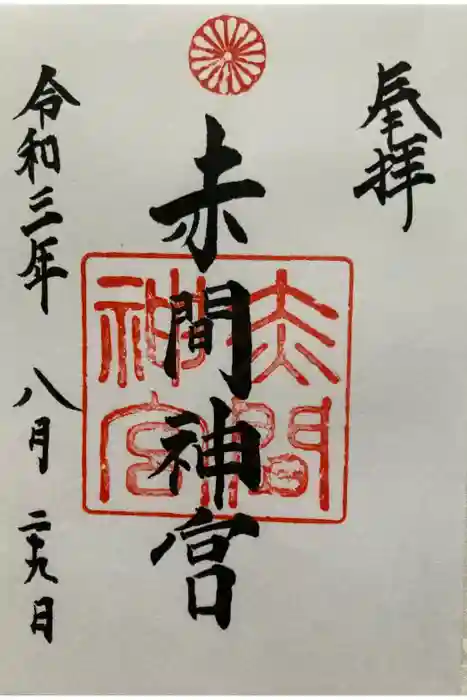 奉拝
赤間神宮
赤間
神宮
令和三年 八月 二十九日